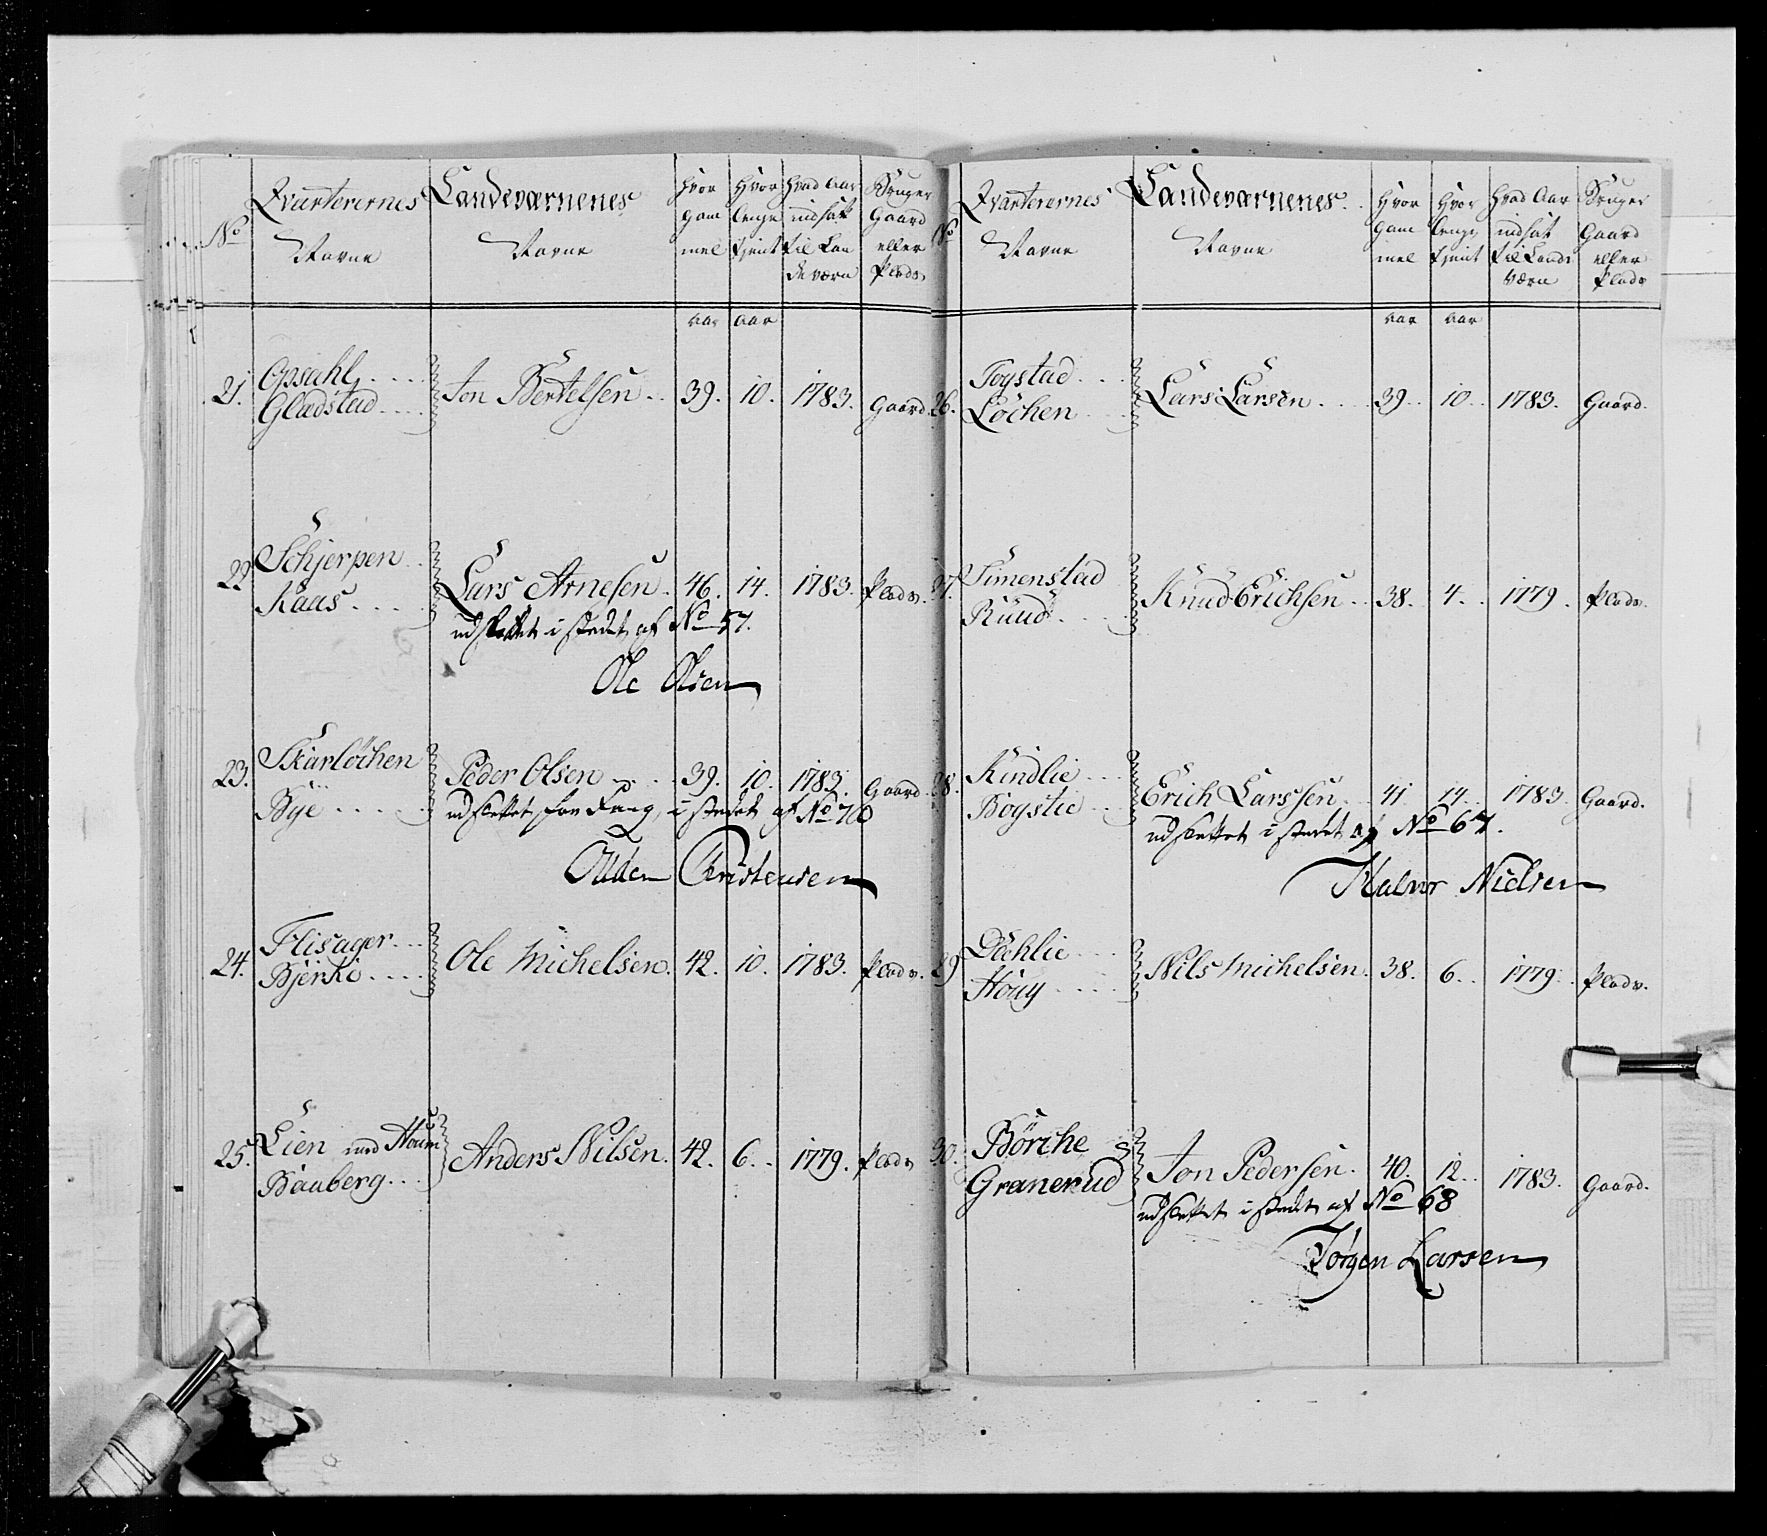 No
Qvarterernes
Navne
Landeværnenes
Navne
Hvor
gam
mel
Hvor
lenge
tient
Hvad Aar
indsat
til Lan
deværn
Bruger
Gaard
eller
Plads
aar aar
21. Opsahl
Gladstad
Jon Bertelsen 39. 10. 1783. Gaard
22 Schjerpen
Kaas
Lars Arnesen. 46. 14. 1783. Plads.
udslettet i stedet af No 57.
Ole Olsen
23. Skarløchen
Bye
Peder Olsen 39. 10. 1783. Gaard
udslettet for Faag i stedet af No 70
Christensen
24. Flisager
Bjerke
Ole Michelsen. 42. 10. 1783. Plads.
25. Lien med Houm
Bauberg
Anders Nilsen. 42. 6. 1779. Plads
No
Qvarterernes
Navne
Landeværnenes
Navne
Hvor
gam
mel
Hvor
lenge
tient
Hvad Aar
indsat
til Lands
værn
Bruger
Gaard
eller
Plads
aar aar
26. Togstad
Løchen
Lars Larsen 39. 10. 1783. Gaard.
27. Simenstad
Ruud
Knud Erichsen 38. 4. 1779. Plads.
28. Kindlie
Bogstie
Erich Larssen 41 14. 1783 Gaard.
udslettet i stedet af No 67.
Halvor Nielsen
29 Dæhlie
Houg
Nils Michelsen. 38. 6. 1779. Plads.
30. Børche
Granerud
Jon Pedersen. 40. 12. 1783. Gaard.
udslettet i stedet af No 68
Jørgen Larsen